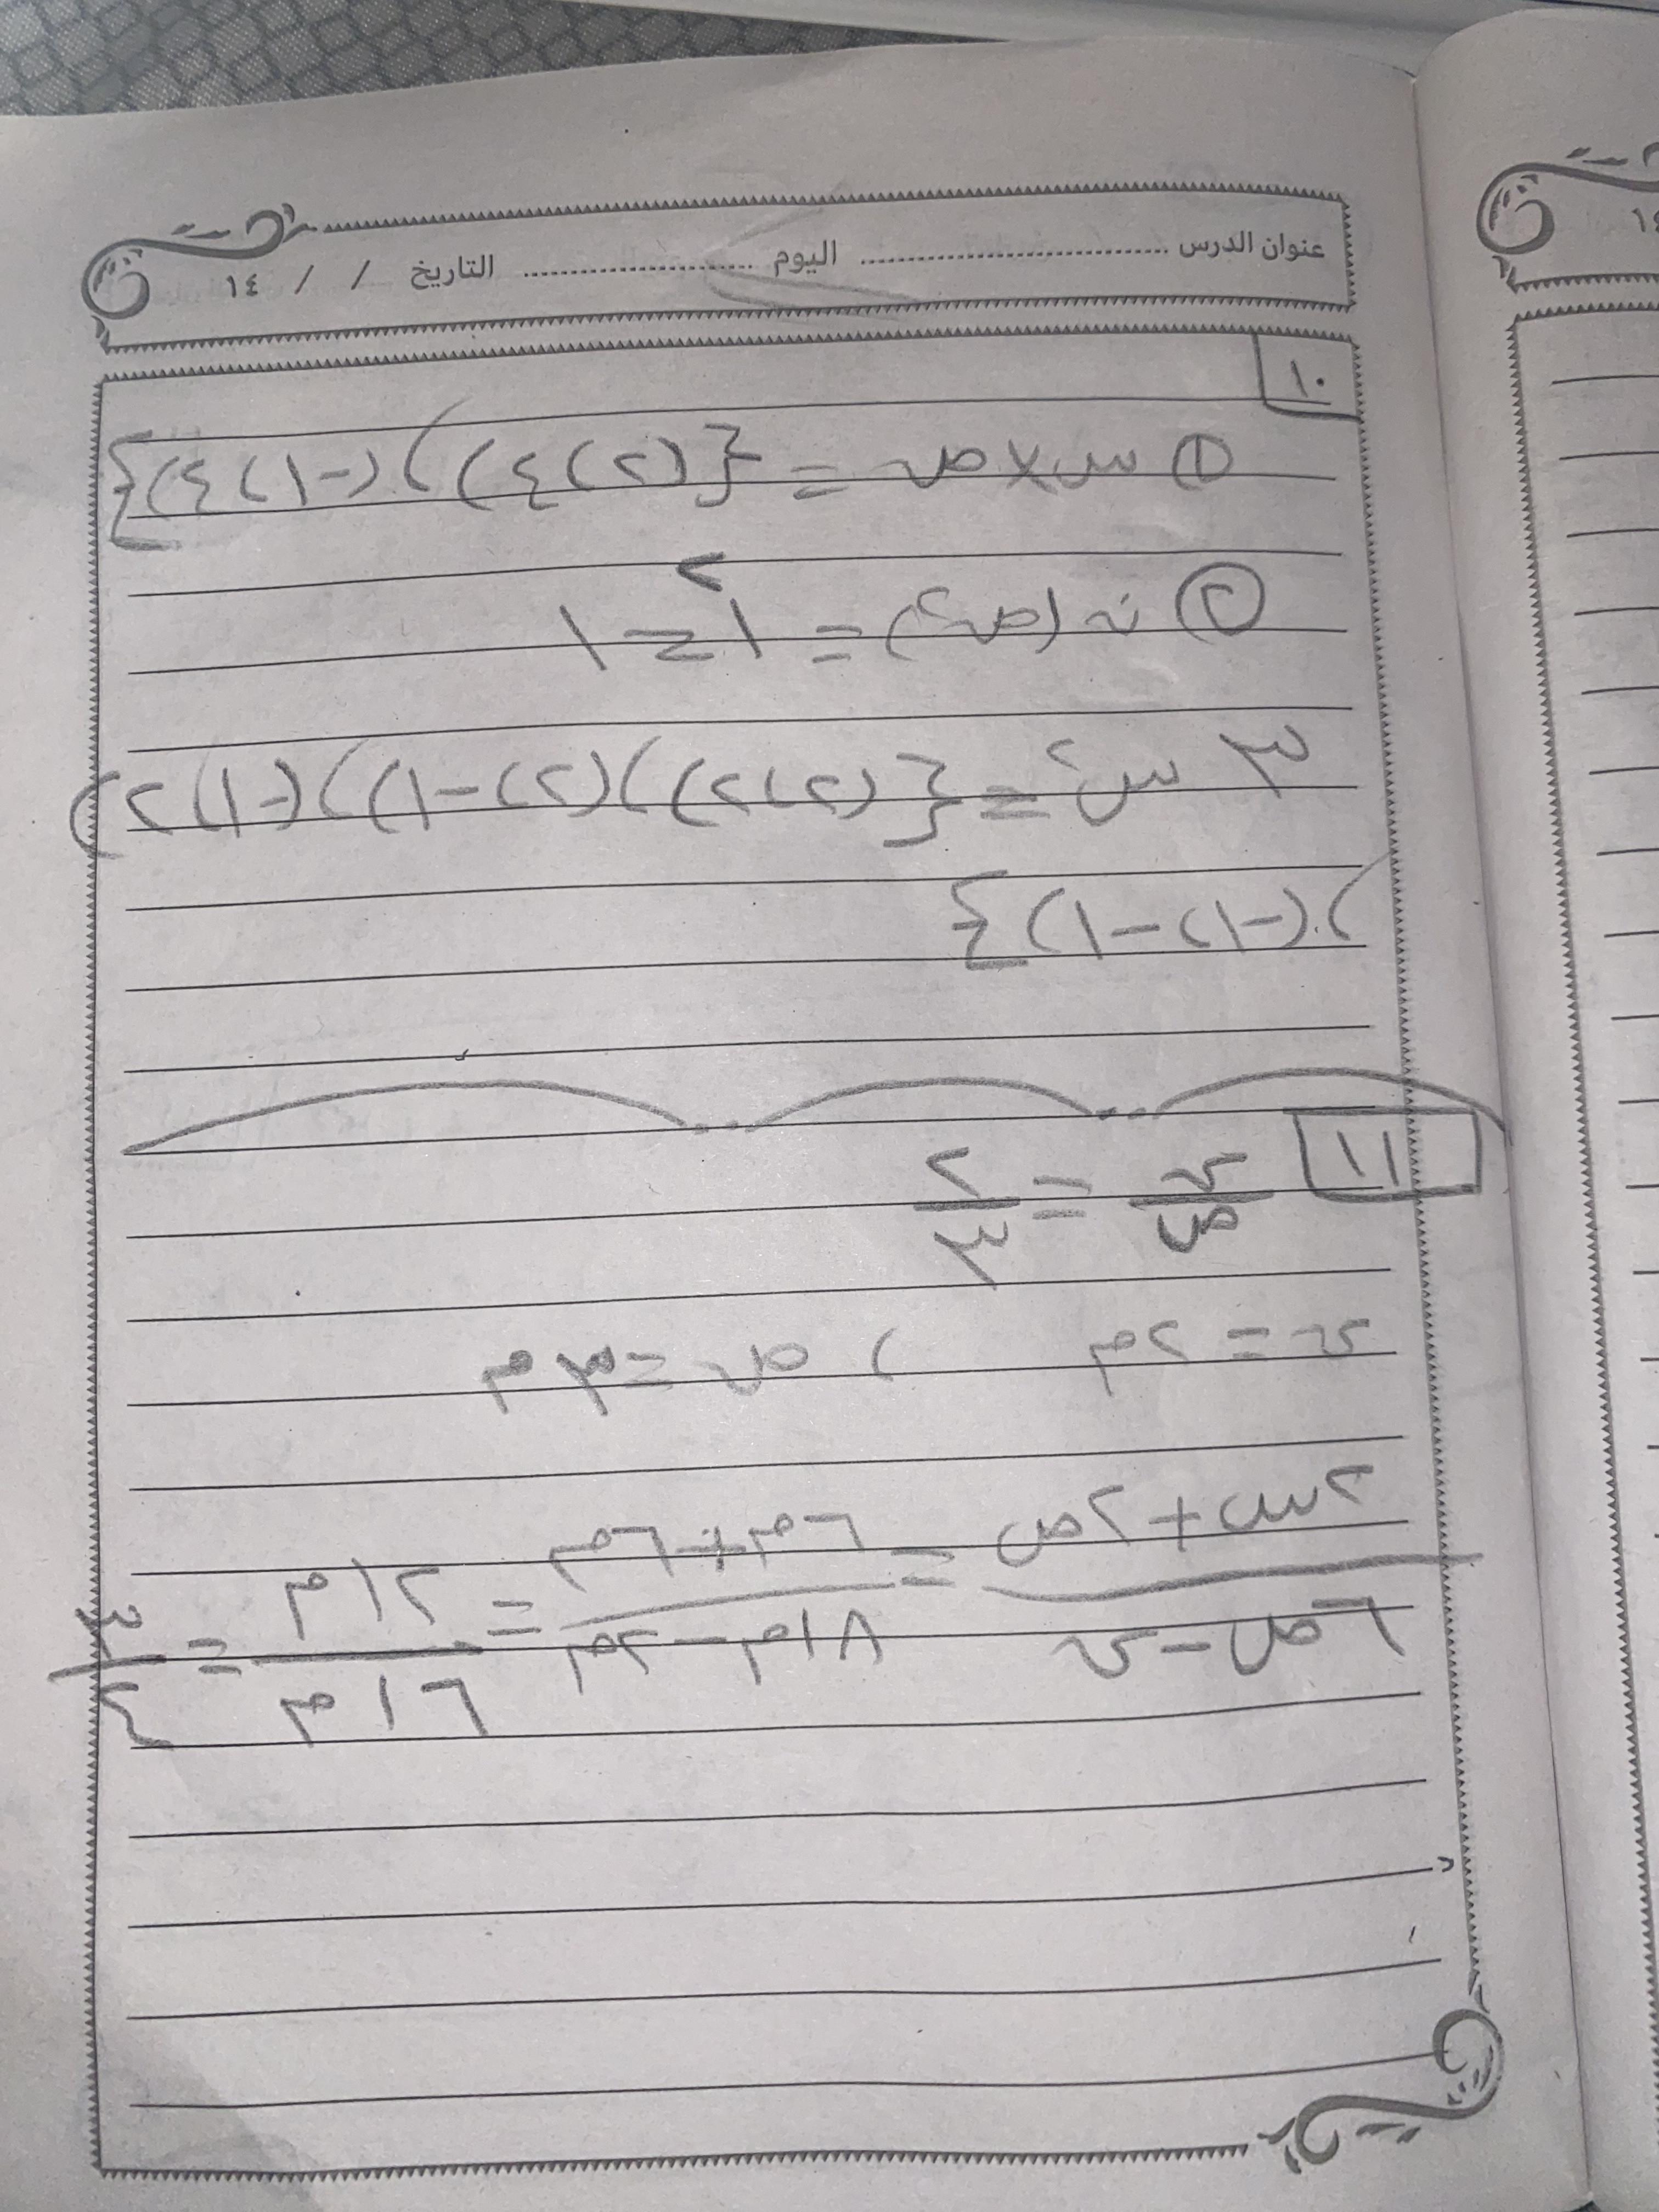 عنوان الدرس .................................... اليوم ........................... التاريخ / / ١٤
١٠
① س×ص = {(٢،٤)،(-١،٤)}
② ن(ص٢) = ١٢ = ١
٣ س٢ = {(٢،٢)،(٢،-١)،(-١،٢)
،(-١،-١)}
١١ س/ص = ٢/٣
س = ٢م ، ص = ٣م
(٢س+٢ص)/(٦ص-س) = (٦م+٦م)/(١٨م-٢م) = ١٢م/١٦م = ٣/٤